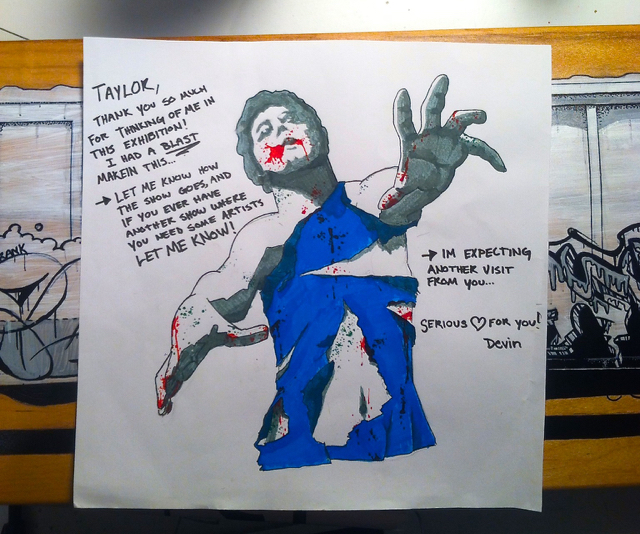 TAYLOR,
THANK YOU SO MUCH
FOR THINKING OF ME IN
THIS EXHIBITION!
I HAD A BLAST
MAKEIN THIS...
→ LET ME KNOW HOW
THE SHOW GOES, AND
IF YOU EVER HAVE
ANOTHER SHOW WHERE
YOU NEED SOME ARTISTS
LET ME KNOW!
→ IM EXPECTING
ANOTHER VISIT
FROM YOU...
SERIOUS ♡ FOR YOU!
Devin
BANK